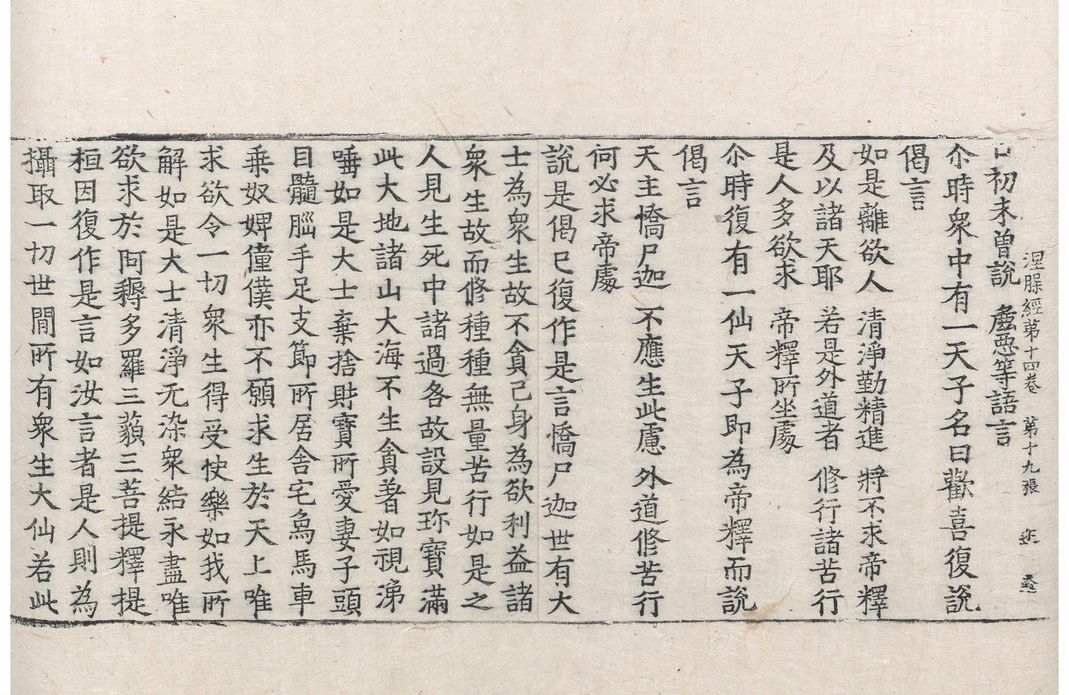 涅脵經第十四卷 第十九張
口初未曽說 麁悪等語言
尒時衆中有一天子名曰歡喜復說
偈言
如是離欲人 清淨勤精進 將不求帝釋
及以諸天耶 若是外道者 修行諸苦行
是人多欲求 帝釋所坐處
尒時復有一仙天子即為帝釋而說
偈言
天主憍尸迦 不應生此慮 外道修苦行
何必求帝處
說是偈已復作是言憍尸迦世有大
士為衆生故不貪己身為欲利益諸
衆生故而修種種無量苦行如是之
人見生死中諸過各故設見珎寶滿
此大地諸山大海不生貪著如視涕
唾如是大士棄捨財寶所愛妻子頭
目髓腦手足支節所居舎宅象馬車
乗奴婢僮僕亦不願求生於天上唯
求欲令一切衆生得受快樂如我所
解如是大士清淨无染衆結永盡唯
欲求於阿耨多羅三藐三菩提釋提
桓因復作是言如汝言者是人則為
攝取一切世間所有衆生大仙若此